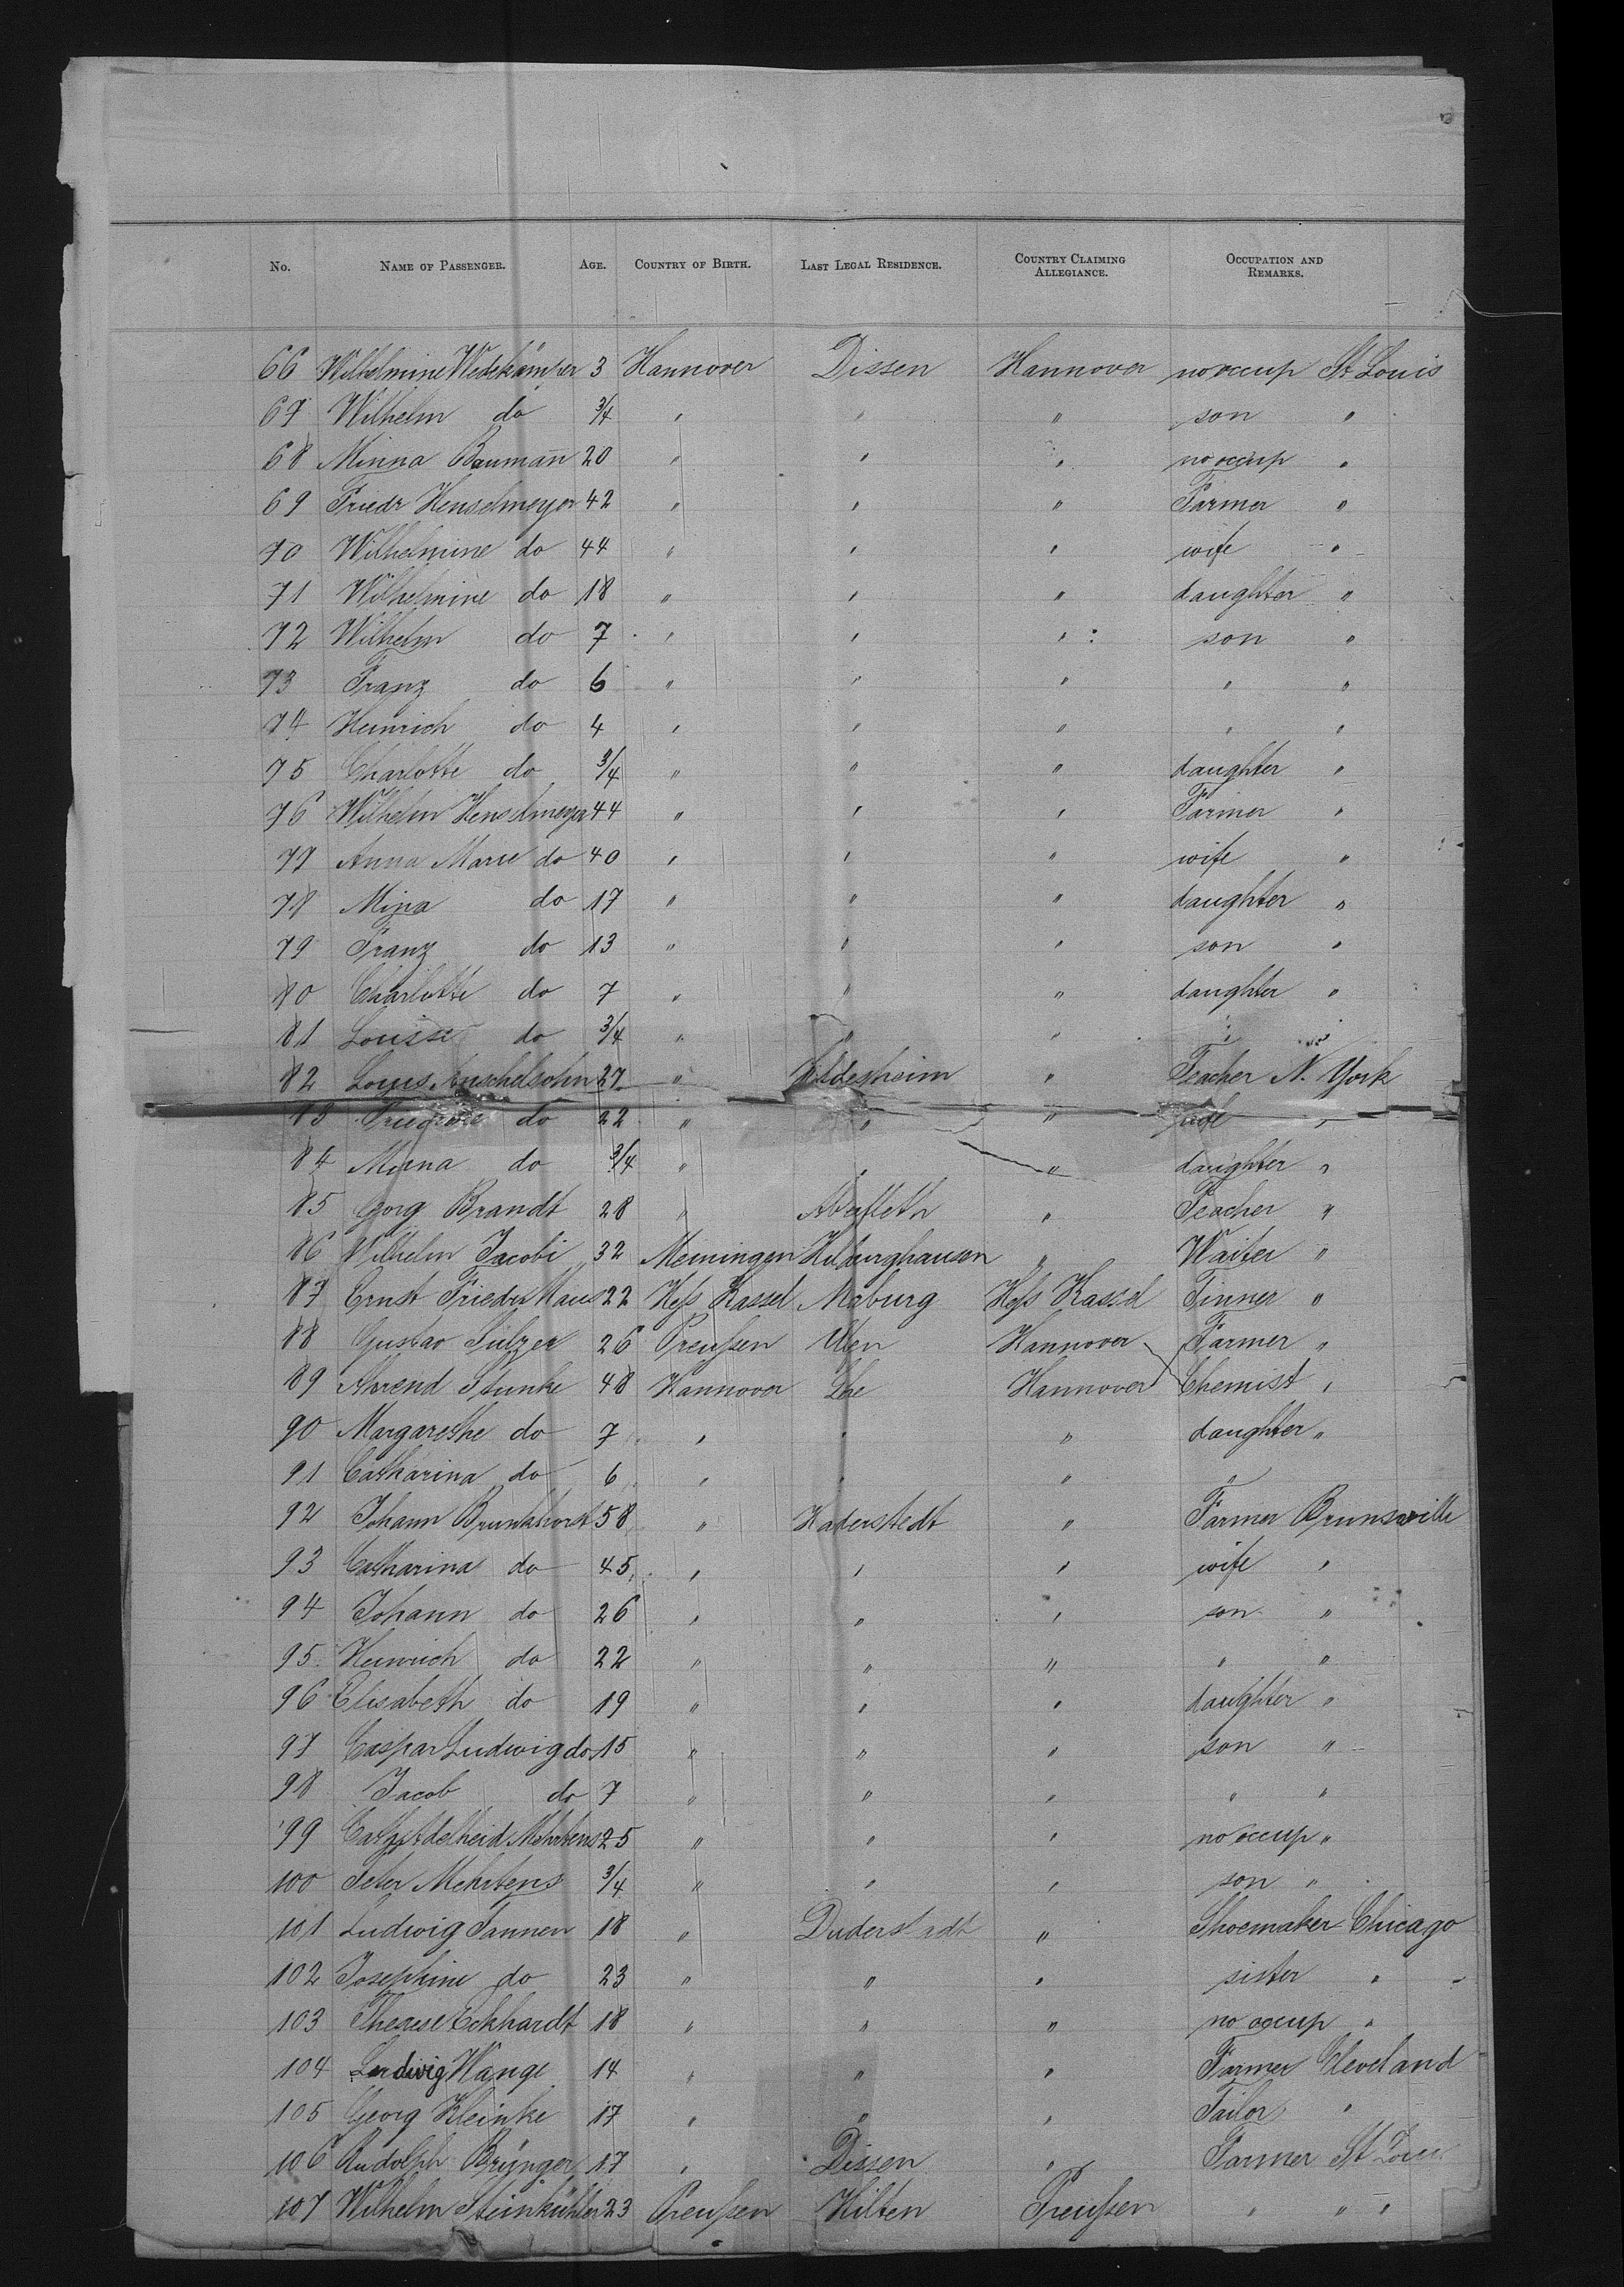 No. NAME OF PASSENGER. AGE. COUNTRY OF BIRTH. LAST LEGAL RESIDENCE. COUNTRY CLAIMING ALLEGIANCE. OCCUPATION AND REMARKS.
66 Wilhelmine Wedekämper 3 Hannover Dissen Hannover no occup St Louis
67 Wilhelm do 3/4 " " " son "
68 Minna Baumann 20 " " " no occup "
69 Friedr Henselmeyer 42 " " " Farmer "
70 Wilhelmine do 44 " " " wife "
71 Wilhelmine do 18 " " " daughter "
72 Wilhelm do 7 " " " son "
73 Franz do 6 " " " " "
74 Heinrich do 4 " " " " "
75 Charlotte do 3/4 " " " daughter "
76 Wilhelm Henselmeyer 44 " " " Farmer "
77 Anna Marie do 40 " " " wife "
78 Mina do 17 " " " daughter "
79 Franz do 13 " " " son "
80 Charlotte do 7 " " " daughter "
81 Louise do 3/4 " " " " "
82 Louis 27 " Hildesheim " Teacher N. York
83 do 22 " " " wife "
84 do 3/4 " " " daughter "
85 Georg Brandt 28 " " Teacher "
86 Wilhelm Jacobi 32 Meiningen Hilburghausen " Waiter "
87 Ernst Friedr Maus 22 Heſs Kassel Maburg Heſs Kassel Tinner "
88 Gustav Sulzer 26 Preuſsen Hannover Farmer "
89 Ahrend Stunke 48 Hannover Lhe Hannover Chemist "
90 Margarethe do 7 " " " daughter "
91 Catharina do 6 " " " "
92 Johann Brunkhorst 58 " Haderstedt " Farmer Brunsville
93 Catharina do 45 " " " wife "
94 Johann do 26 " " " son "
95 Heinrich do 22 " " " " "
96 Elisabeth do 19 " " " daughter "
97 Caspar Ludwig do 15 " " " son "
98 Jacob do 7 " " " " "
99 Cath Adelheid Mehrtens 25 " " " no occup "
100 Peter Mehrtens 3/4 " " " son "
101 Ludwig Tannen 18 " Duderstadt " Shoemaker Chicago
102 Josephine do 23 " " " sister "
103 Therese Eckhardt 18 " " " no occup "
104 Ludwig Wange 14 " " " Farmer Cleveland
105 Georg Kleinke 17 " " " Tailor "
106 Rudolph Brünger 17 " Dissen " Farmer St Louis
107 Wilhelm Steinkühler 23 Preuſsen Hilten Preuſsen " " "